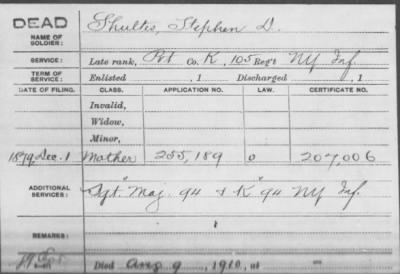 DEAD
NAME OF SOLDIER: Shultes, Stephen D.
SERVICE: Late rank, Pvt Co. K, 105 Reg't NY Inf.
TERM OF SERVICE: Enlisted , 1 Discharged , 1
DATE OF FILING. CLASS. APPLICATION NO. LAW. CERTIFICATE NO.
Invalid,
Widow,
Minor,
1879 Dec. 1 Mother 255,189 0 207,006
ADDITIONAL SERVICES: Sgt. Maj. 94 & "K" 94 NY Inf.
REMARKS:
Died Aug 9, 1910, at —